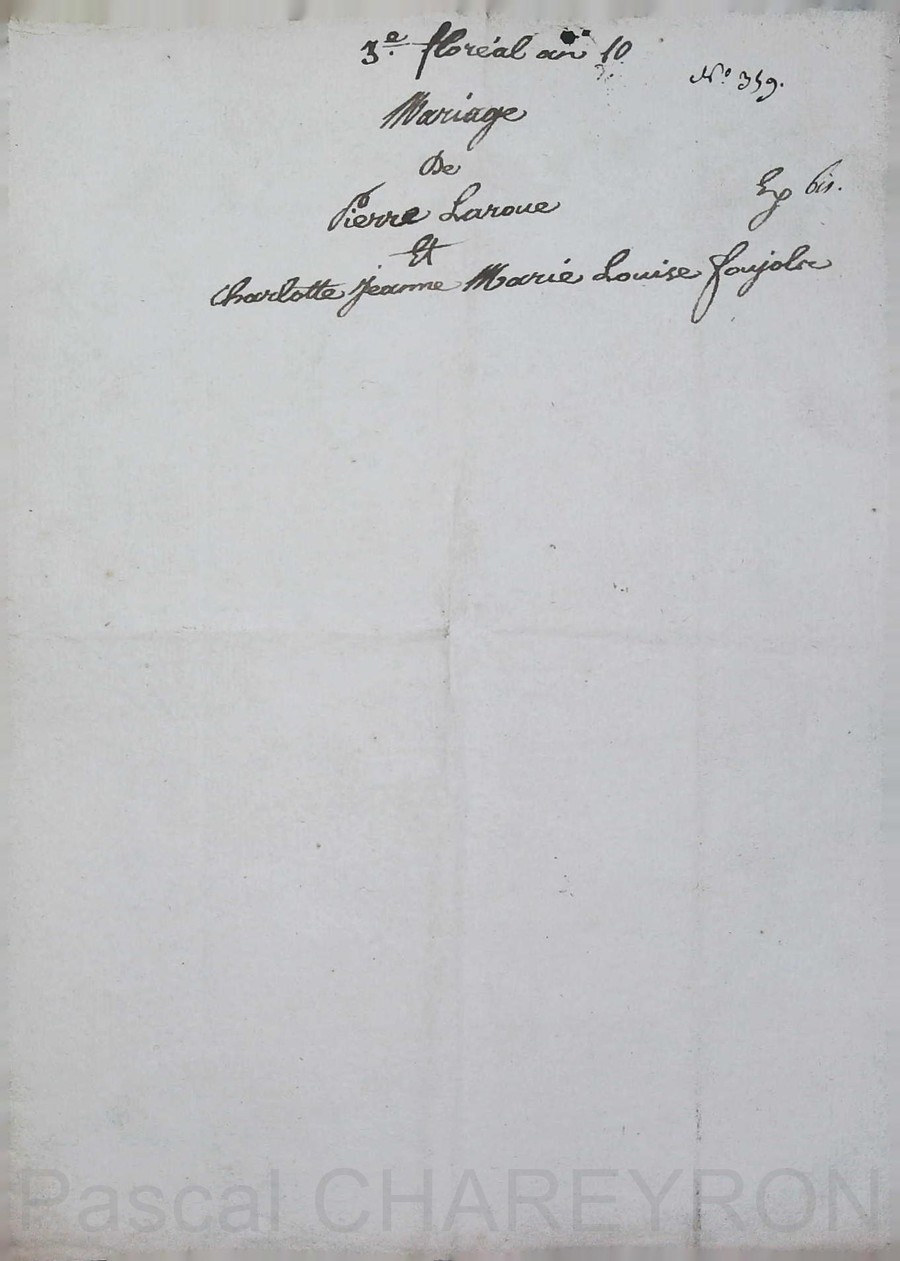 3e floréal an 10
N.o 359.
Mariage
De
Pierre Laroue
Ex bis.
Et
Charlotte jeanne Marie Louise foujols
Pascal CHAREYRON